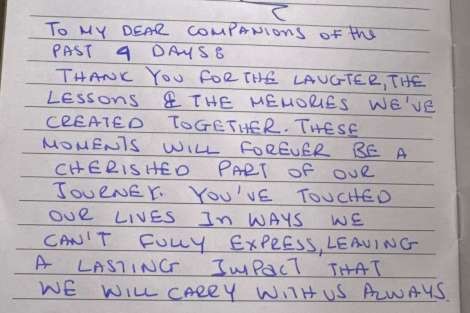 TO MY DEAR COMPANIONS OF the
PAST 9 DAYS:
THANK YOU FOR THE LAUGTER, THE
LESSONS & THE MEMORIES WE'VE
CREATED TOGETHER. THESE
MOMENTS WILL FOREVER BE A
CHERISHED PART OF OUR
JOURNEY. YOU'VE TOUCHED
OUR LIVES In WAYS WE
CAN'T FULLY EXPRESS, LEAVING
A LASTING ImpACT THAT
WE WILL CARRY WITH US ALWAYS.